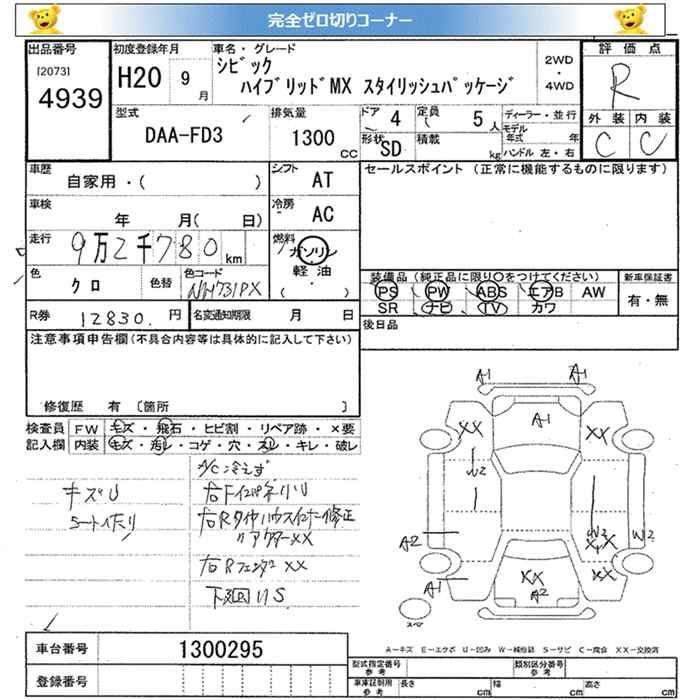 完全ゼロ切りコーナー
出品番号 初度登録年月 車名・グレード 評価点
[2073] 4939
H20 9月
シビック
ハイブリッドMX スタイリッシュパッケージ
2WD・4WD
R
型式 排気量 ドア 4 定員 5人 ディーラー・並行
DAA-FD3 1300cc
形状 SD 積載 kg
モデル年式 年
ハンドル 左・右
外装 内装
C C
車歴 シフト セールスポイント (正常に機能するものに限ります)
自家用・( ) AT
車検 冷房
年 月( 日) AC
走行 燃料
9万2千780km ガソリン
軽油
( )
色 色替 色コード
クロ NH731PX
装備品 (純正品に限り○をつけてください) 新車保証書
PS PW ABS エアB AW 有・無
SR ナビ TV カワ
R券 12830. 円 名変通知期限 月 日
後日品
注意事項申告欄(不具合内容等は具体的に記入して下さい)
修復歴 有 〔箇所 〕
検査員 FW キズ・飛石・ヒビ割・リペア跡・×要
記入欄 内装 キズ・汚レ・コゲ・穴・スレ・キレ・破レ
A/C冷えず
キズU
シート作り
右Rフェンダ XX
下廻りS
A1 A1
A1
XX XX
W2
W2
A2 XX W2
A1 XX XX
A2
スペア
A-キズ E-エクボ U-凹み W-補修跡 S-サビ C-腐食 XX-交換済
車台番号 1300295
登録番号
型式指定番号 参考 類別区分番号 参考
車庫証明用 参考 長さ cm 幅 cm 高さ cm